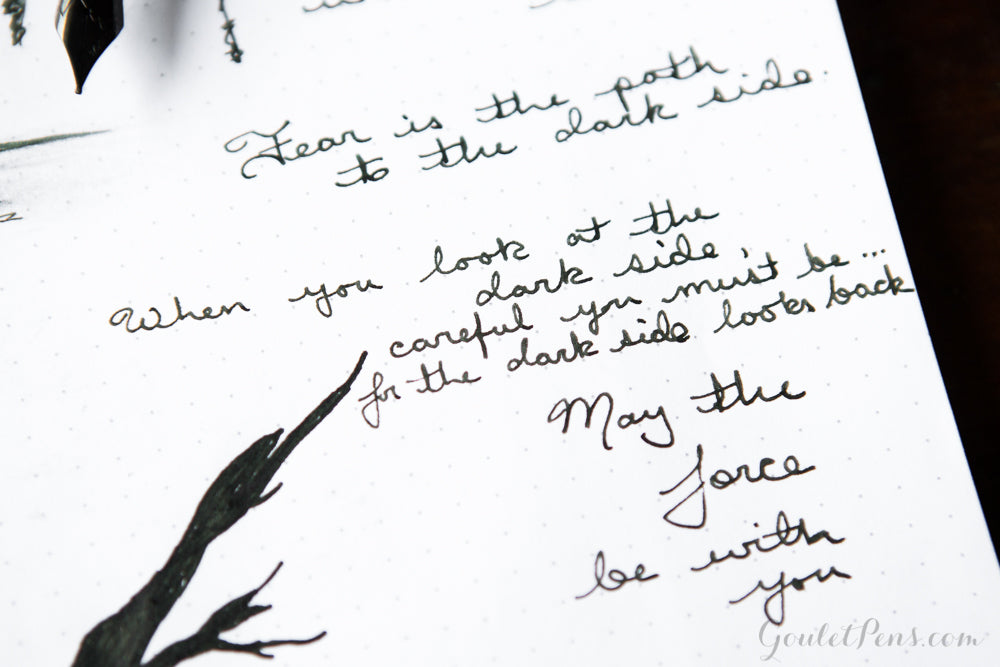 Fear is the path
to the dark side.
When you look at the
dark side
careful you must be...
for the dark side looks back
May the
force
be with
you
GouletPens.com